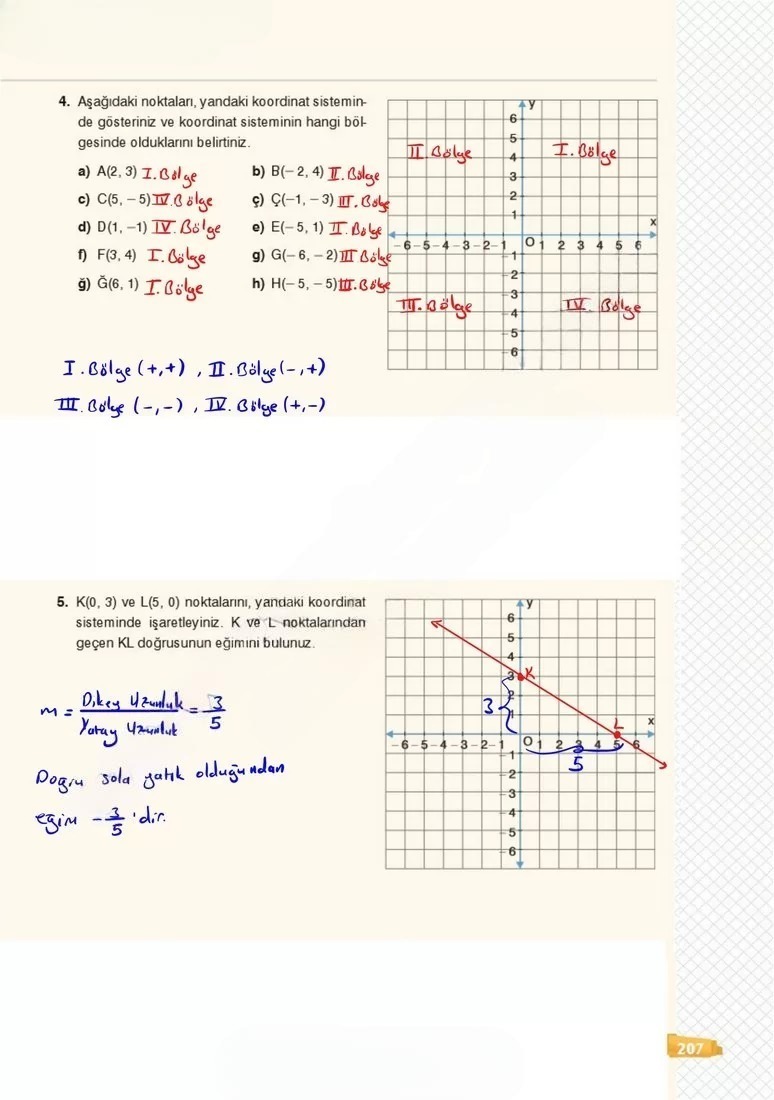 4. Aşağıdaki noktaları, yandaki koordinat sistemin-
de gösteriniz ve koordinat sisteminin hangi böl-
gesinde olduklarını belirtiniz.
a) A(2, 3) I. Bölge b) B(− 2, 4) II. Bölge
c) C(5, − 5) IV. Bölge ç) Ç(−1, − 3) III. Bölge
d) D(1, −1) IV. Bölge e) E(− 5, 1) II. Bölge
f) F(3, 4) I. Bölge g) G(− 6, − 2) III Bölge
ğ) Ğ(6, 1) I. Bölge h) H(− 5, − 5) III. Bölge
y
6
5
II. Bölge 4 I. Bölge
3
2
1
x
− 6 − 5 − 4 − 3 − 2 − 1 O 1 2 3 4 5 6
− 1
− 2
− 3
III. Bölge − 4 IV. Bölge
− 5
− 6
I. Bölge (+,+) , II. Bölge (−,+)
III. Bölge (−,−) , IV. Bölge (+,−)
5. K(0, 3) ve L(5, 0) noktalarını, yandaki koordinat
sisteminde işaretleyiniz. K ve L noktalarından
geçen KL doğrusunun eğimini bulunuz.
m = Dikey Uzunluk / Yatay Uzunluk = 3/5
Doğru sola yatık olduğundan
eğim − 3/5 'dir.
y
6
5
4
3 K
3 2
1
L x
− 6 − 5 − 4 − 3 − 2 − 1 O 1 2 3 4 5 6
− 1 5
− 2
− 3
− 4
− 5
− 6
207